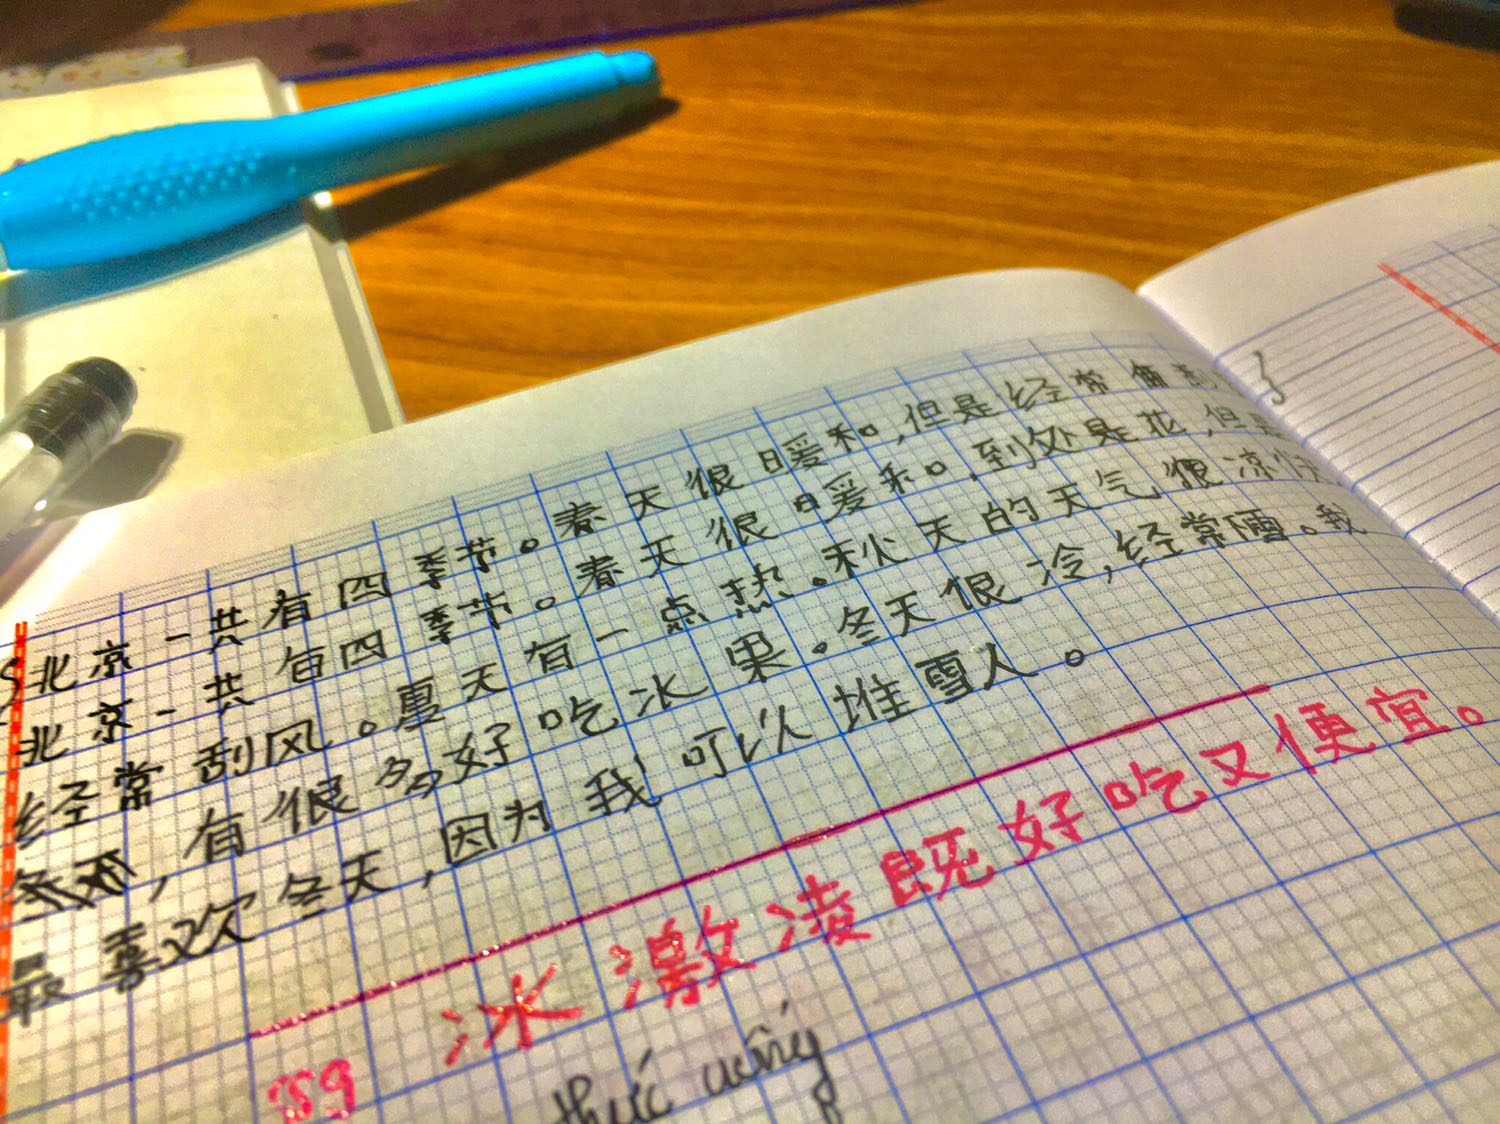 北京一共有四季节。春天很暖和,但是经常
北京一共有四季节。春天很暖和,到处是花,但是
经常刮风。夏天有一点热。秋天的天气很凉快
,有很多好吃水果。冬天很冷,经常雪。我
最喜欢冬天,因为我可以堆雪人。
冰激凌既好吃又便宜。
thức uống